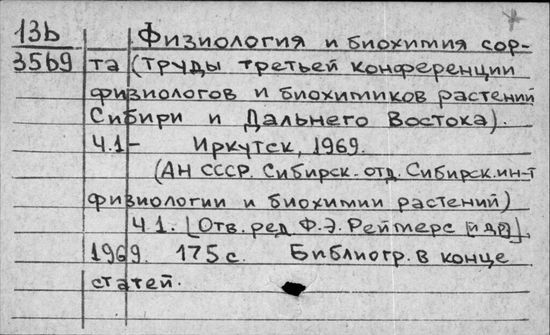 13b Физиология и биохимия сор-
3569 та (труды третьей конференции
физиологов и биохимиков растений
Сибири и Дальнего Востока).
Ч.1- Иркутск, 1969.
(АН СССР. Сибирск. отд. Сибирск. ин-т
физиологии и биохимии растений)
Ч 1. [Отв. ред. Ф.Э. Реймерс и др].
1969. 175 с. Библиогр. в конце
статей.